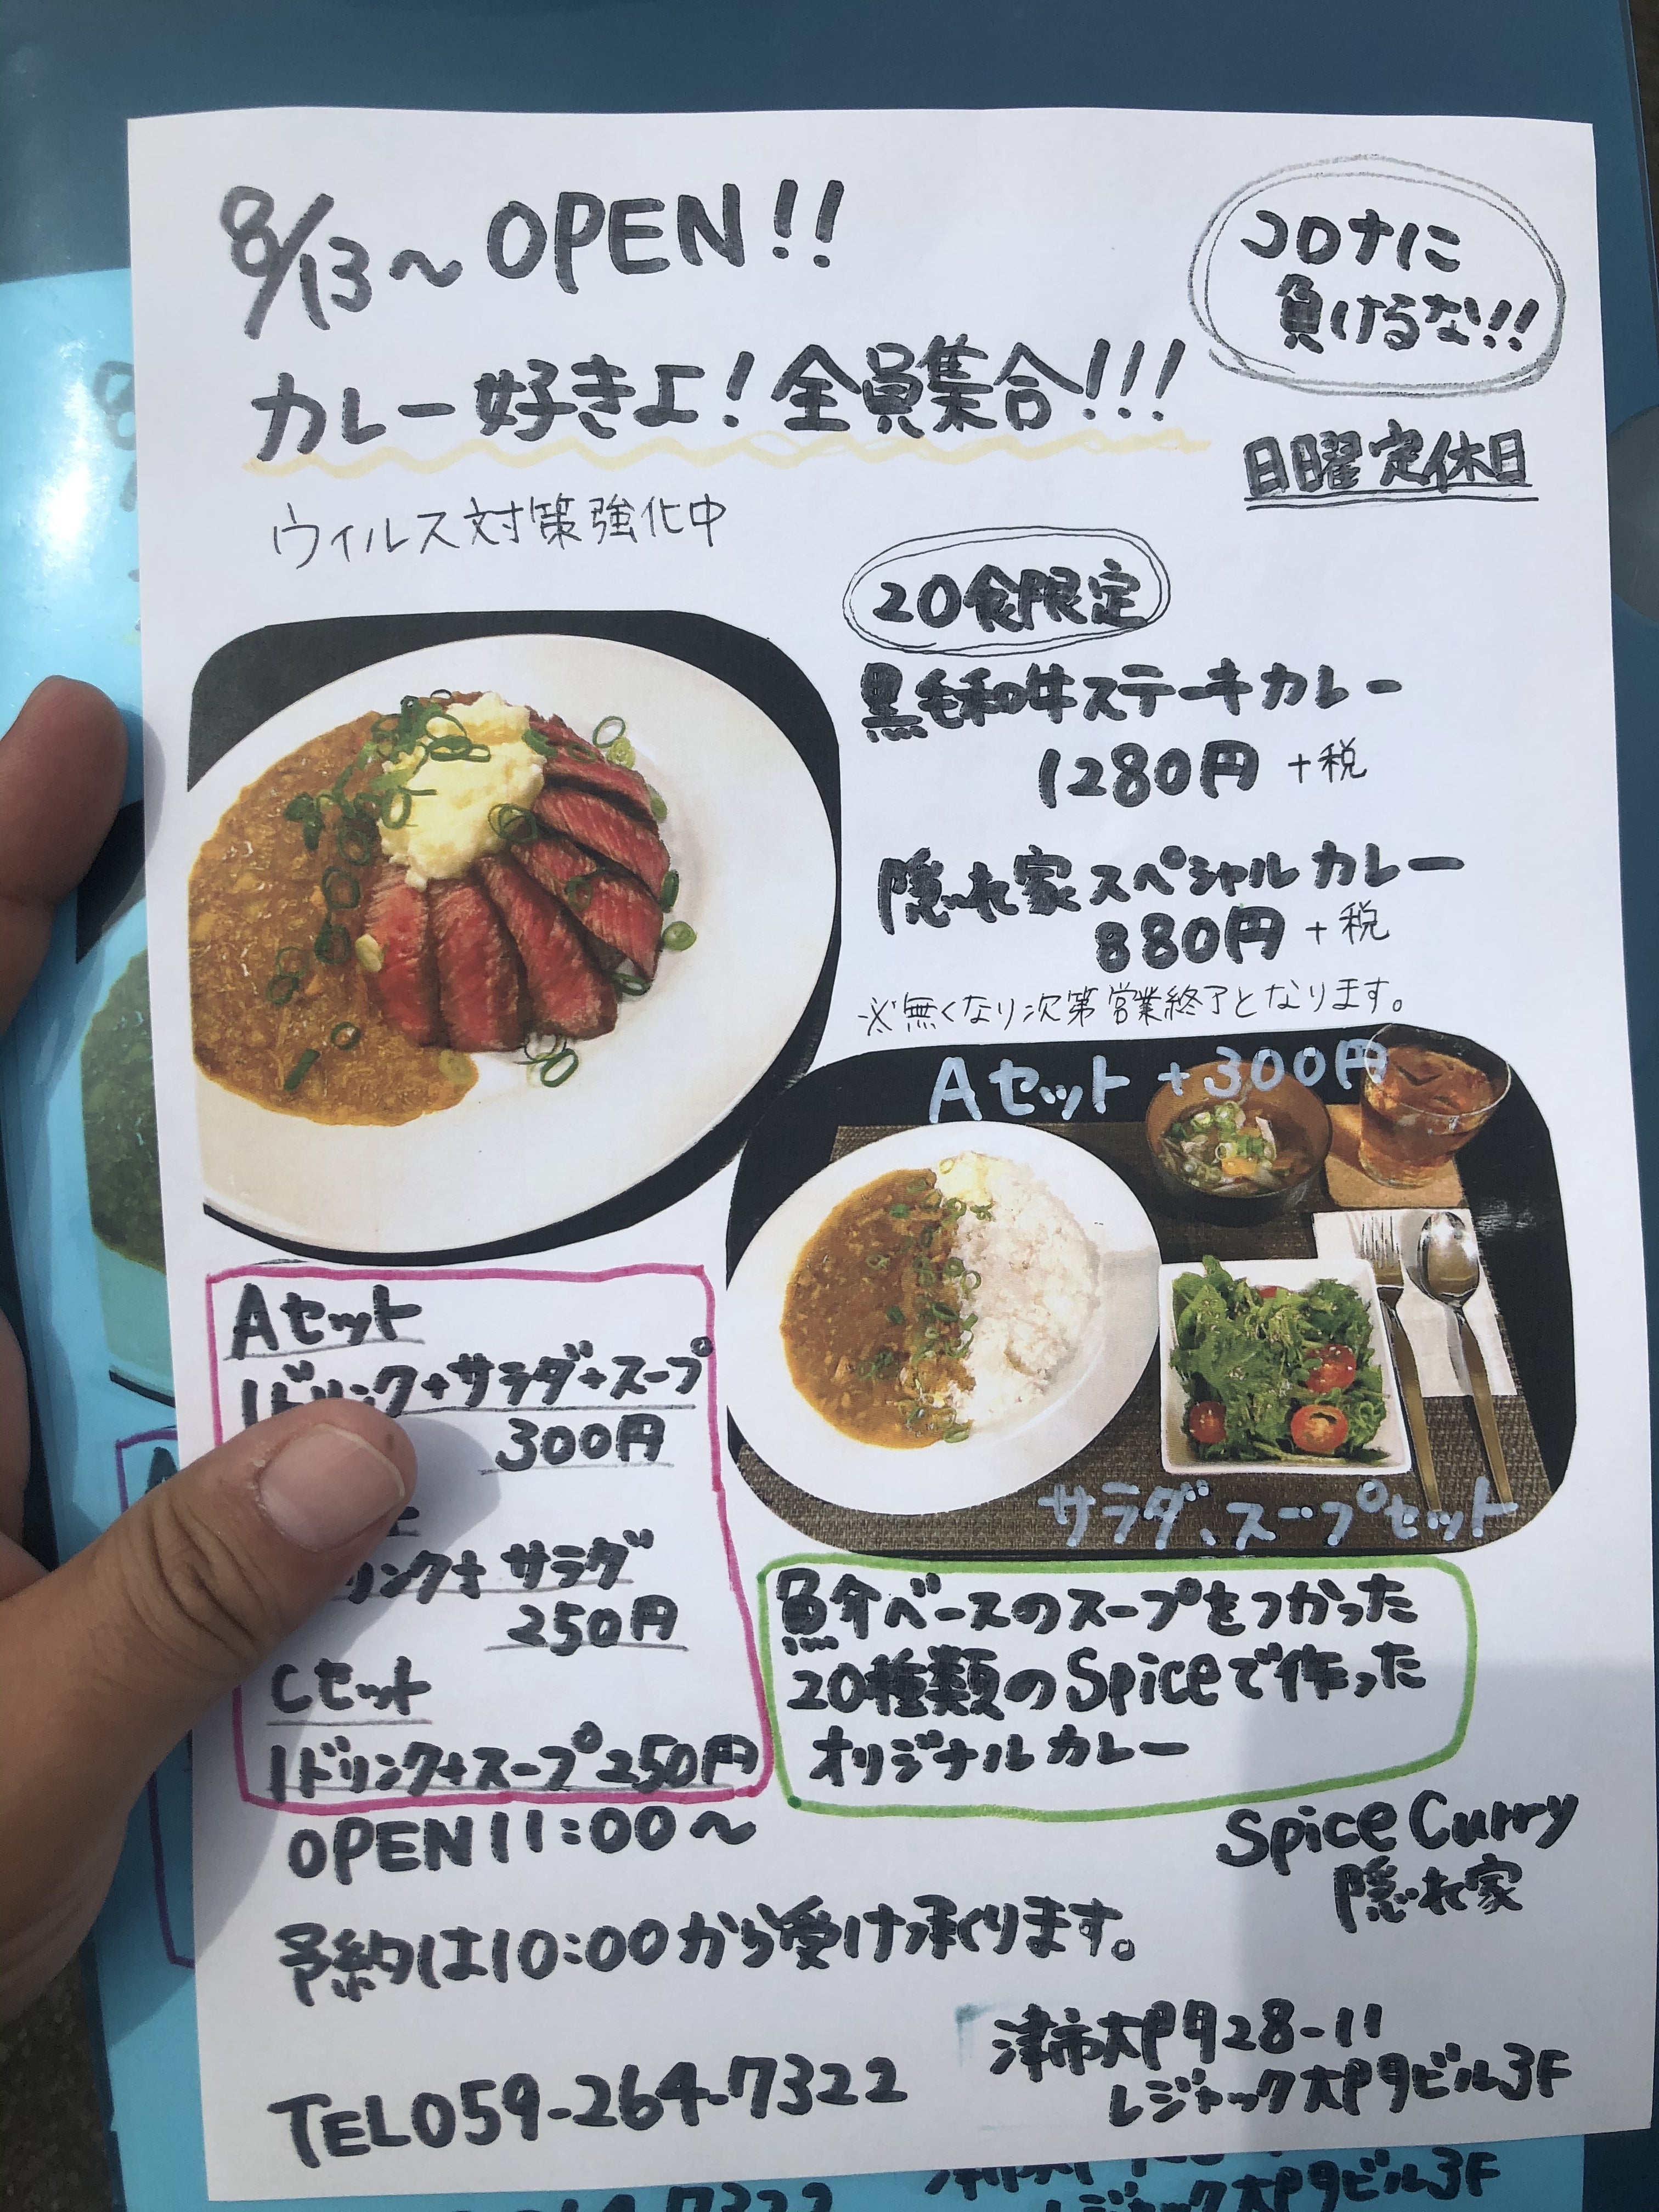 8/13～OPEN!!
コロナに
負けるな!!!
カレー好きよ!全員集合!!!
日曜定休日
ウィルス対策強化中
20食限定
黒毛和牛ステーキカレー
1280円 +税
隠れ家スペシャルカレー
880円 +税
※無くなり次第営業終了となります。
Aセット +300円
サラダ、スープセット
Aセット
1ドリンク+サラダ+スープ
300円
リンク+サラダ
250円
Cセット
1ドリンク+スープ250円
魚介ベースのスープをつかった
20種類のSpiceで作った
オリジナルカレー
OPEN11:00～
Spice Curry
隠れ家
予約は10:00から受け承ります。
津市大門28-11
レジャック大門ビル3F
TEL059-264-7322
レジャック大門ビル3F